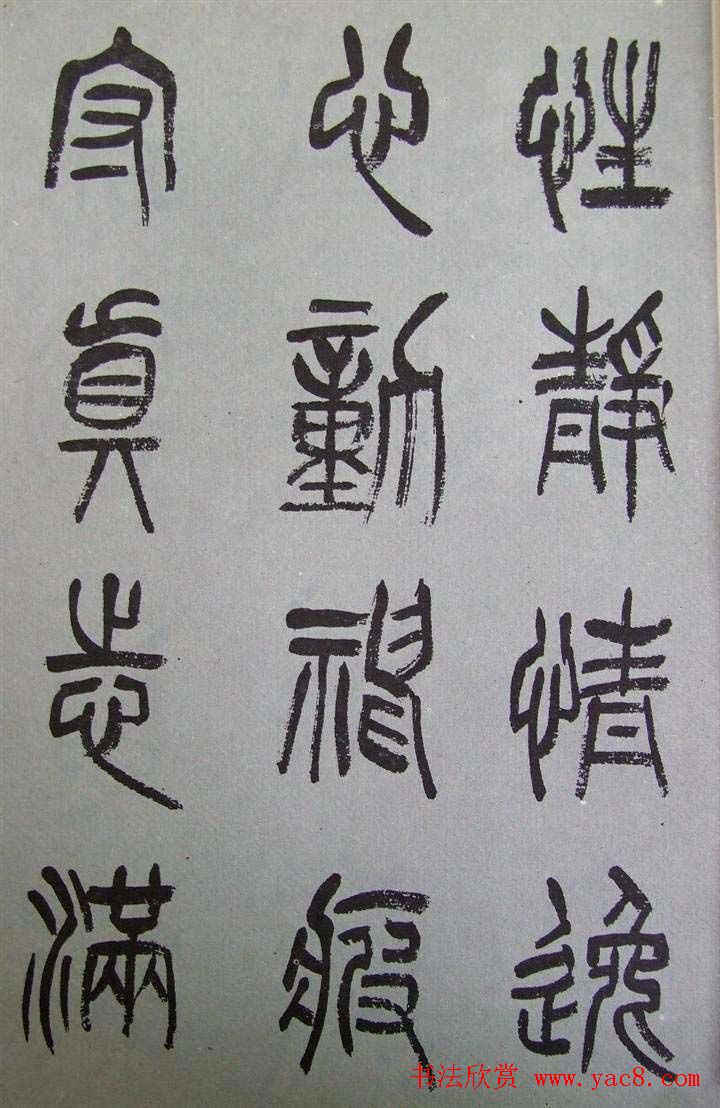 性靜情逸
心動神疲
守真志滿
书法欣赏 www.yac8.com